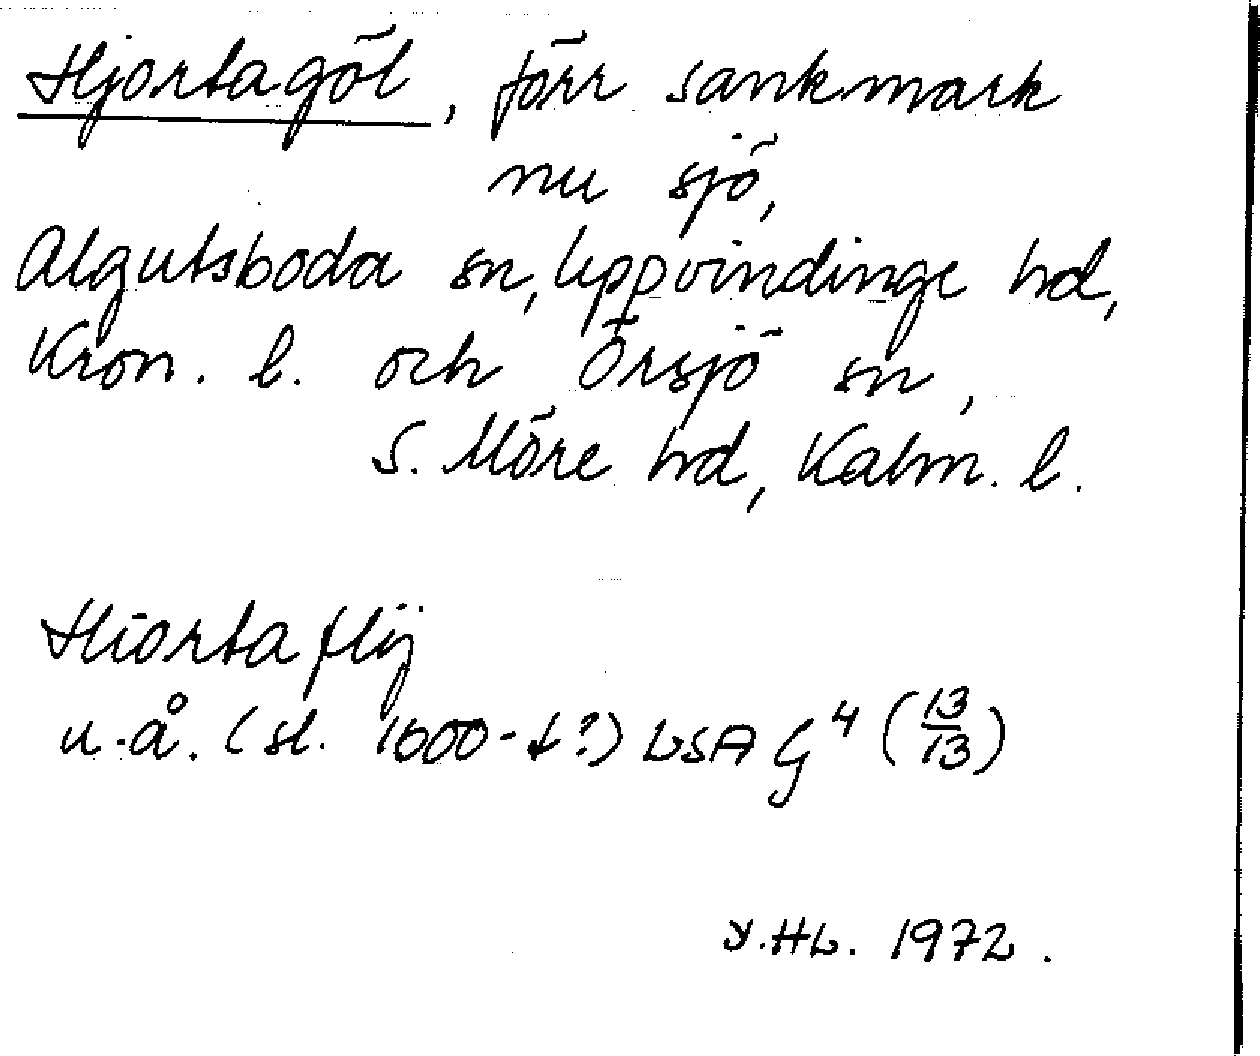 Hjortagöl, förr sankmark
nu sjö,
Algutsboda sn, Uppvindinge hd,
Kron. l. och Örsjö sn,
S. Möre hd, Kalm. l.
Hiorta flÿ
u.å. (sl. 1600-t?) LSA G⁴ (13/13)
Y.HL. 1972.